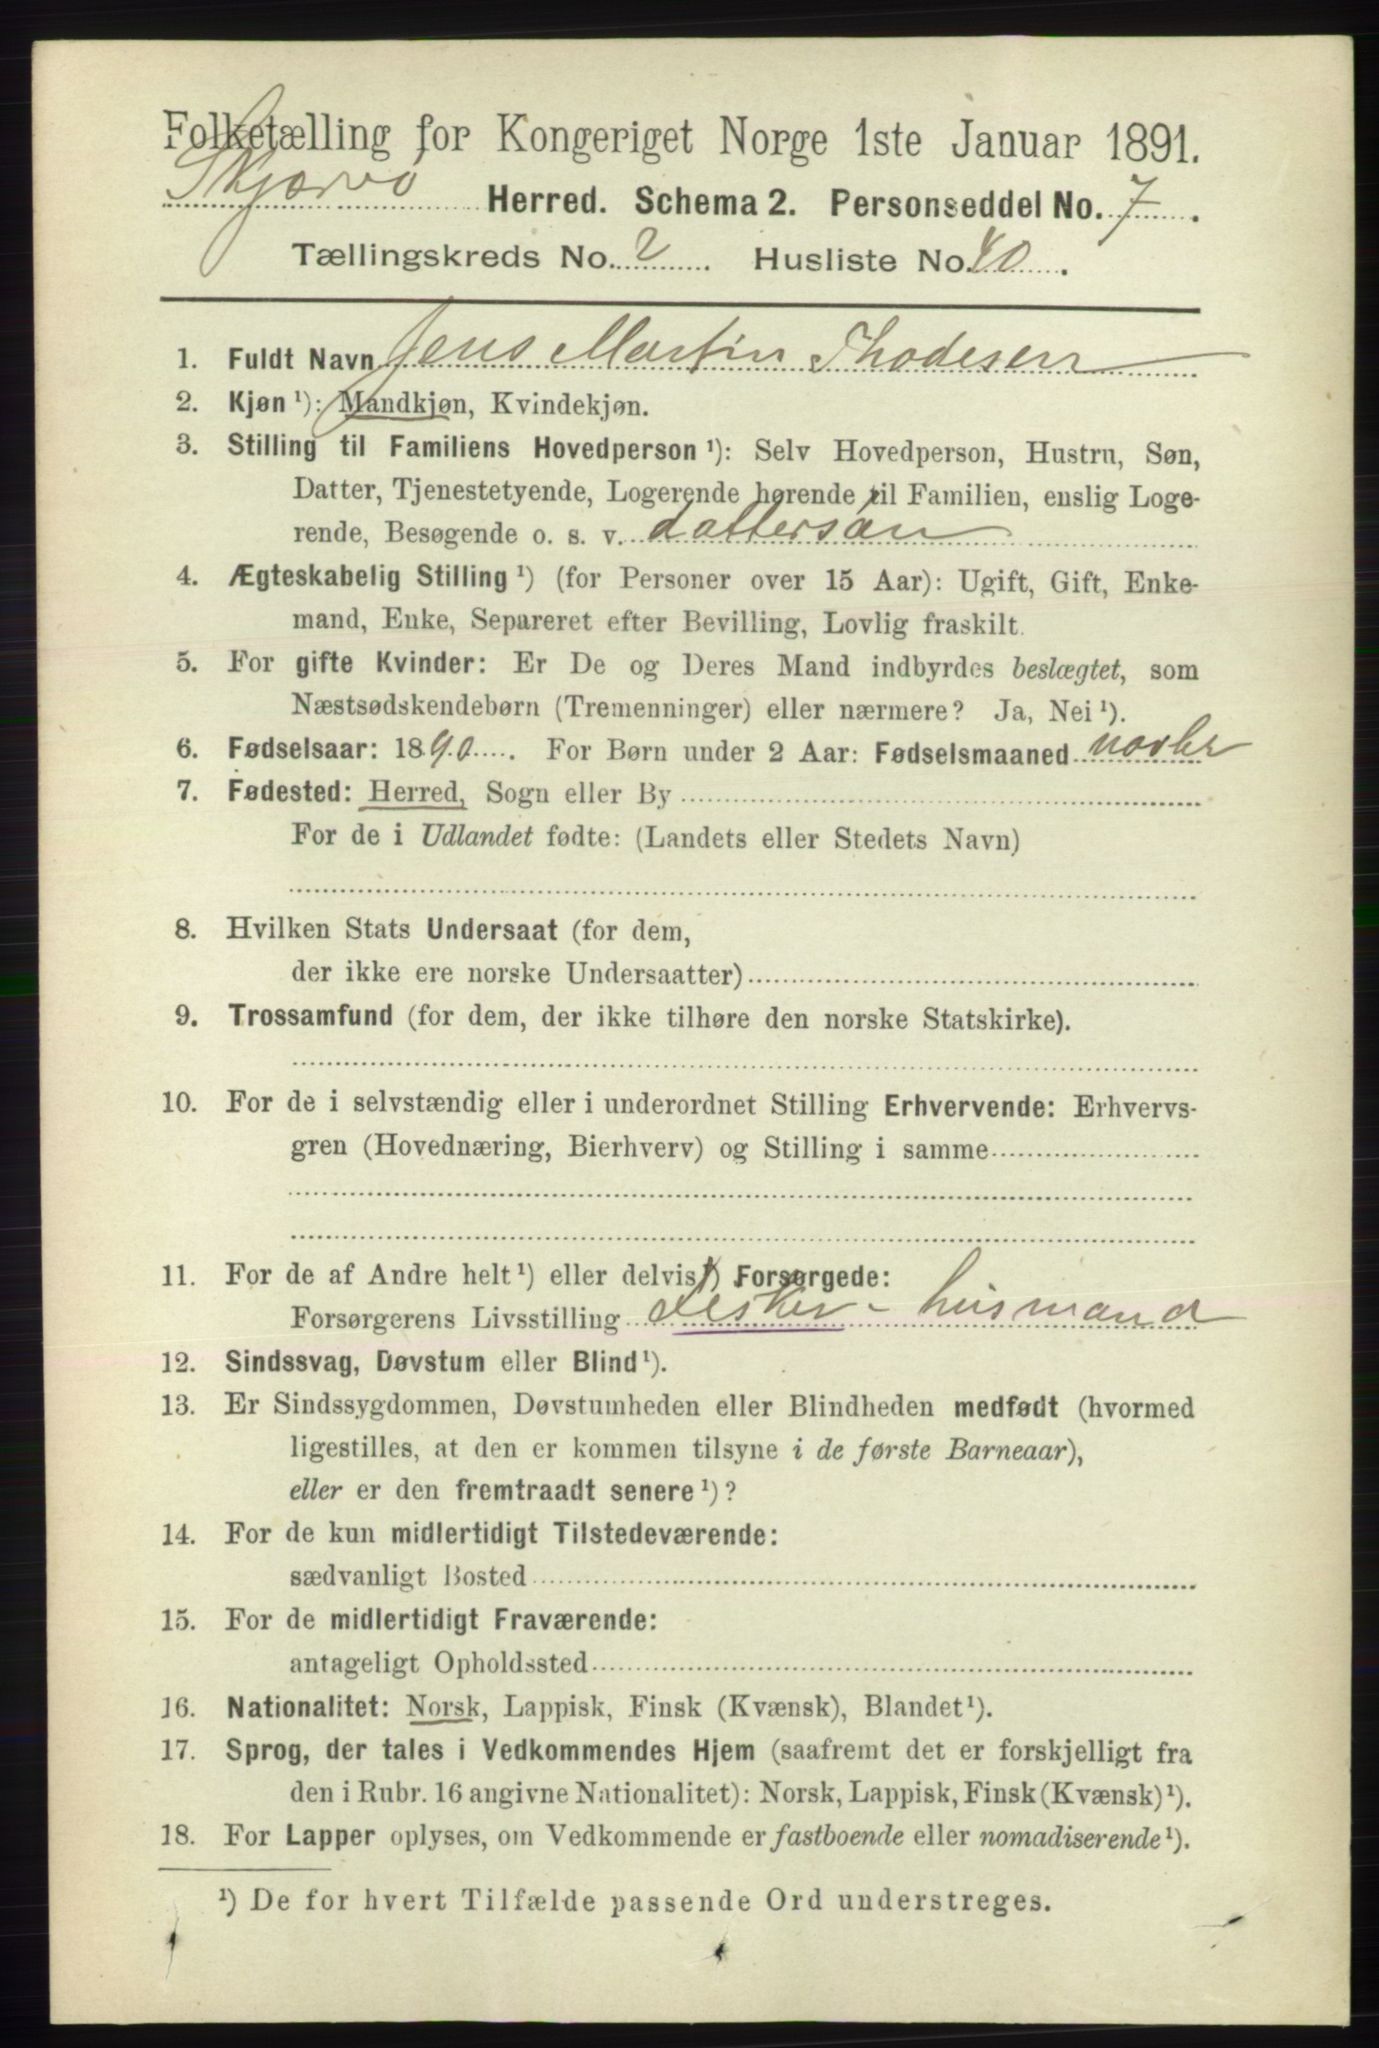 Folketælling for Kongeriget Norge 1ste Januar 1891.
Skjærvø Herred. Schema 2. Personseddel No. 7.
Tællingskreds No. 2. Husliste No. 40.
1. Fuldt Navn Jens Martin Thodesen
2. Kjøn ¹): Mandkjøn, Kvindekjøn.
3. Stilling til Familiens Hovedperson ¹): Selv Hovedperson, Hustru, Søn,
Datter, Tjenestetyende, Logerende hørende til Familien, enslig Loge-
rende, Besøgende o. s. v. dattersøn
4. Ægteskabelig Stilling ¹) (for Personer over 15 Aar): Ugift, Gift, Enke-
mand, Enke, Separeret efter Bevilling, Lovlig fraskilt.
5. For gifte Kvinder: Er De og Deres Mand indbyrdes beslægtet, som
Næstsødskendebørn (Tremenninger) eller nærmere? Ja, Nei ¹).
6. Fødselsaar: 1890. For Børn under 2 Aar: Fødselsmaaned novbr
7. Fødested: Herred, Sogn eller By
For de i Udlandet fødte: (Landets eller Stedets Navn)
8. Hvilken Stats Undersaat (for dem,
der ikke ere norske Undersaatter)
9. Trossamfund (for dem, der ikke tilhøre den norske Statskirke).
10. For de i selvstændig eller i underordnet Stilling Erhvervende: Erhvervs-
gren (Hovednæring, Bierhverv) og Stilling i samme
11. For de af Andre helt ¹) eller delvis ¹) Forsørgede:
Forsørgerens Livsstilling fisker - husmand
12. Sindssvag, Døvstum eller Blind ¹).
13. Er Sindssygdommen, Døvstumheden eller Blindheden medfødt (hvormed
ligestilles, at den er kommen tilsyne i de første Barneaar),
eller er den fremtraadt senere ¹)?
14. For de kun midlertidigt Tilstedeværende:
sædvanligt Bosted
15. For de midlertidigt Fraværende:
antageligt Opholdssted
16. Nationalitet: Norsk, Lappisk, Finsk (Kvænsk), Blandet ¹).
17. Sprog, der tales i Vedkommendes Hjem (saafremt det er forskjelligt fra
den i Rubr. 16 angivne Nationalitet): Norsk, Lappisk, Finsk (Kvænsk) ¹).
18. For Lapper oplyses, om Vedkommende er fastboende eller nomadiserende ¹).
¹) De for hvert Tilfælde passende Ord understreges.